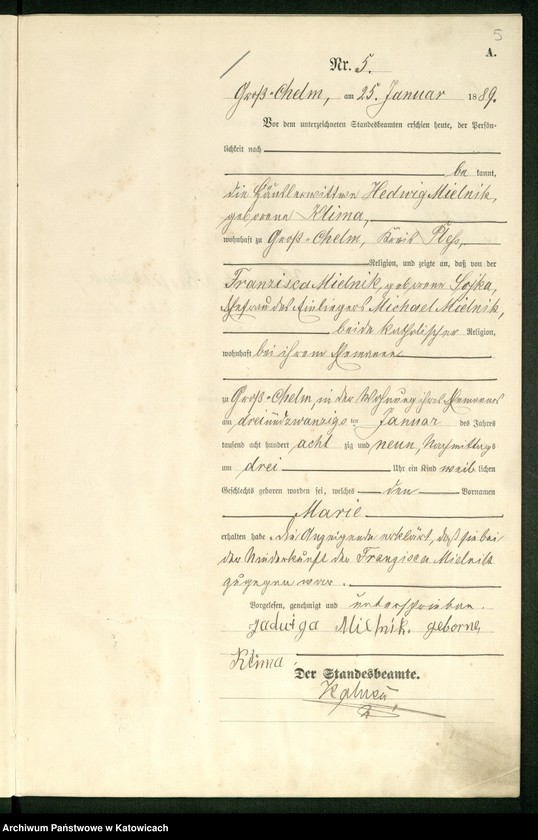 5
A.
Nr. 5.
Groß-Chelm, am 25. Januar 1889.
Vor dem unterzeichneten Standesbeamten erschien heute, der Persön-
lichkeit nach
be kannt,
die Häuslerwittwe Hedwig Mielnik,
geborene Klima,
wohnhaft zu Groß-Chelm, Kreis Pleß,
Religion, und zeigte an, daß von der
Franzisca Mielnik, geborene Sojka,
Ehefrau des Einliegers Michael Mielnik,
beide katholischer Religion,
wohnhaft bei ihrem Ehemanne
zu Groß-Chelm, in der Wohnung ihres Ehemannes
am dreiundzwanzigs ten Januar des Jahres
tausend acht hundert acht zig und neun, Nachmittags
um drei Uhr ein Kind weib lichen
Geschlechts geboren worden sei, welches den Vornamen
Marie
erhalten habe. Die Anzeigende erklärt, daß sie bei
der Niederkunft der Franzisca Mielnik
zugegen war.
Vorgelesen, genehmigt und unterschrieben.
Jadwiga Mielnik. geborne,
Klima
Der Standesbeamte.
Archiwum Państwowe w Katowicach